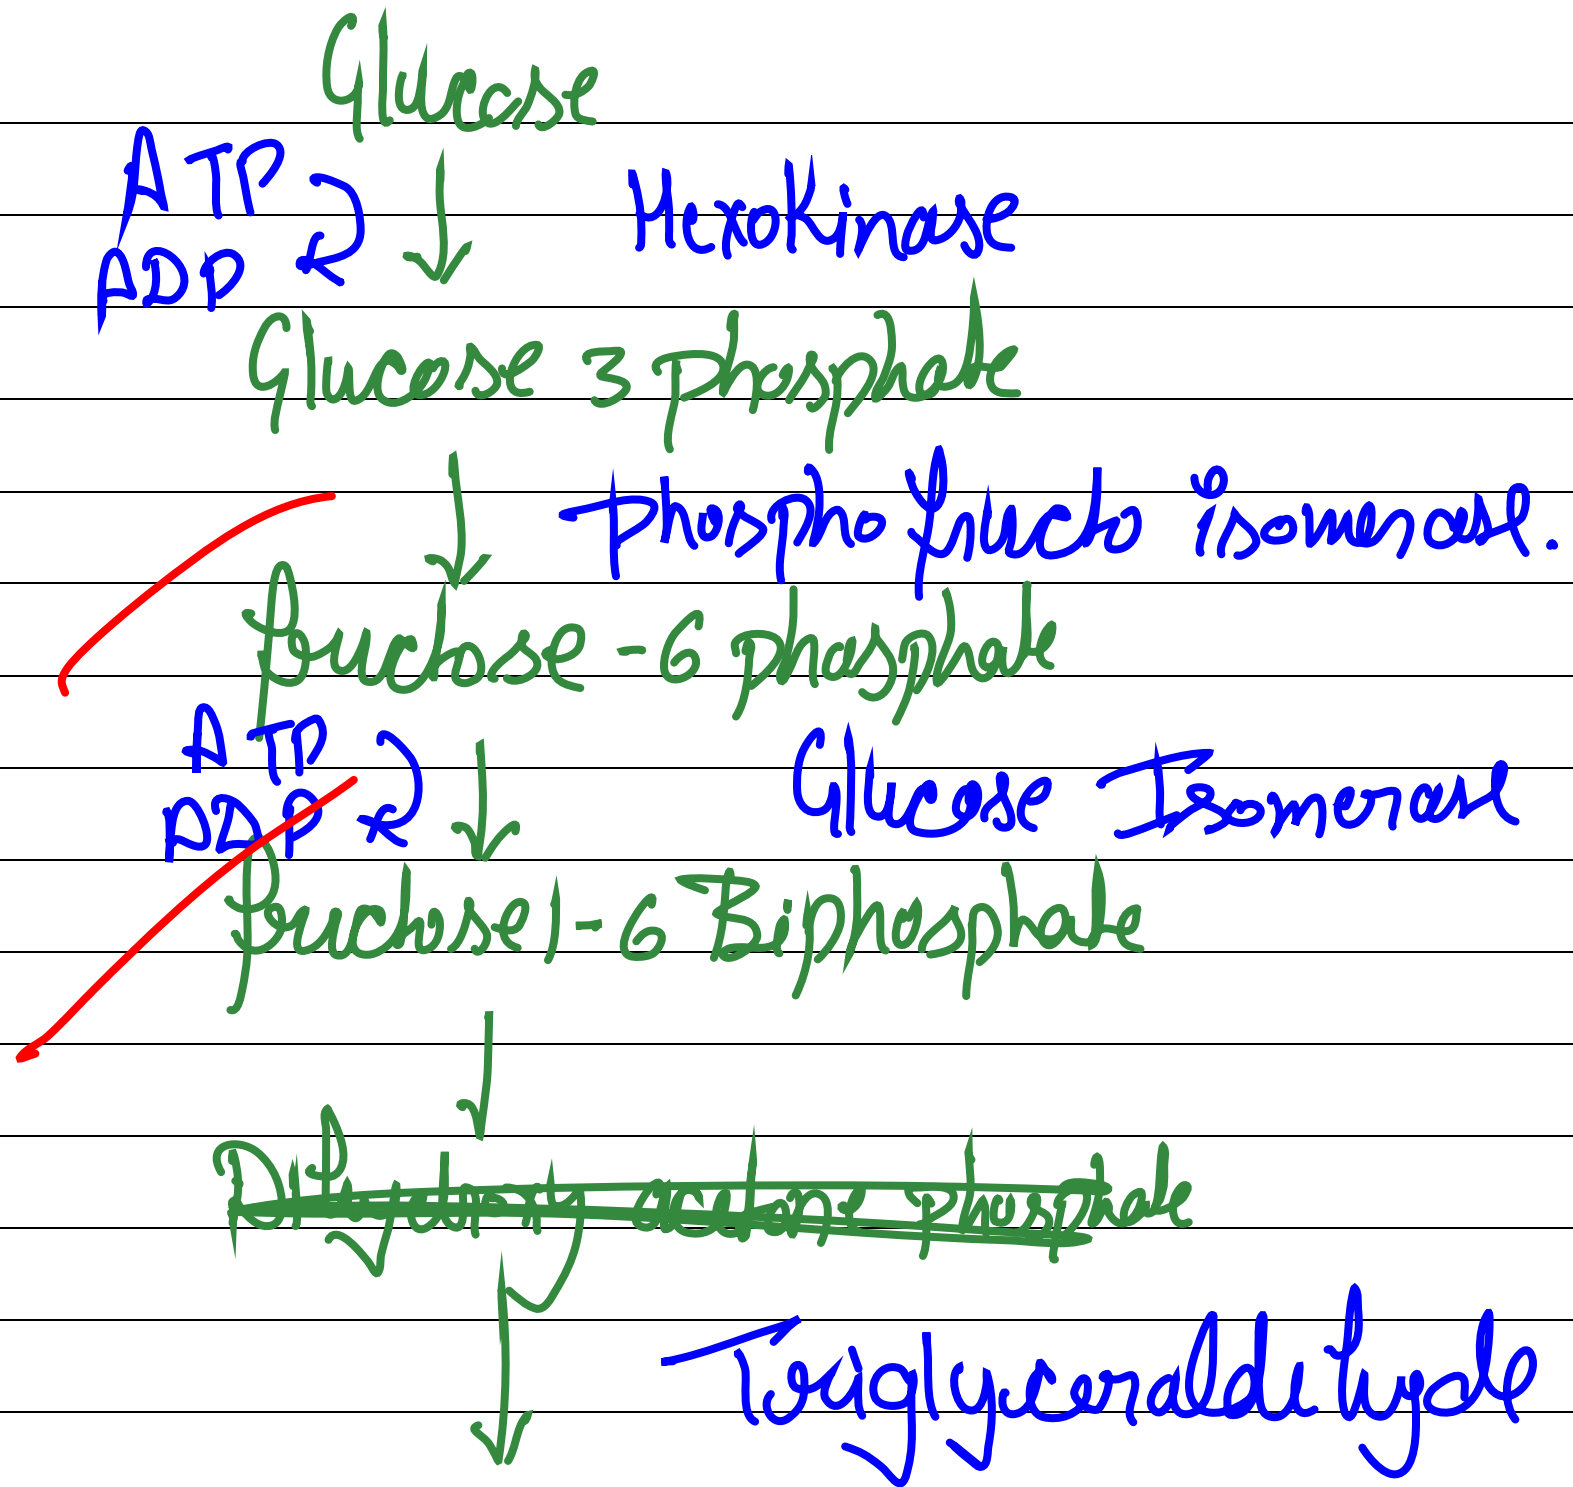 Glucose
ATP
Hexokinase
ADP
Glucose 3 phosphate
phospho fructo isomerase.
fructose - 6 phosphate
ATP
Glucose Isomerase
ADP
fructose 1 - 6 Biphosphate
Dihydroxy acetone phosphate
Triglyceraldehyde